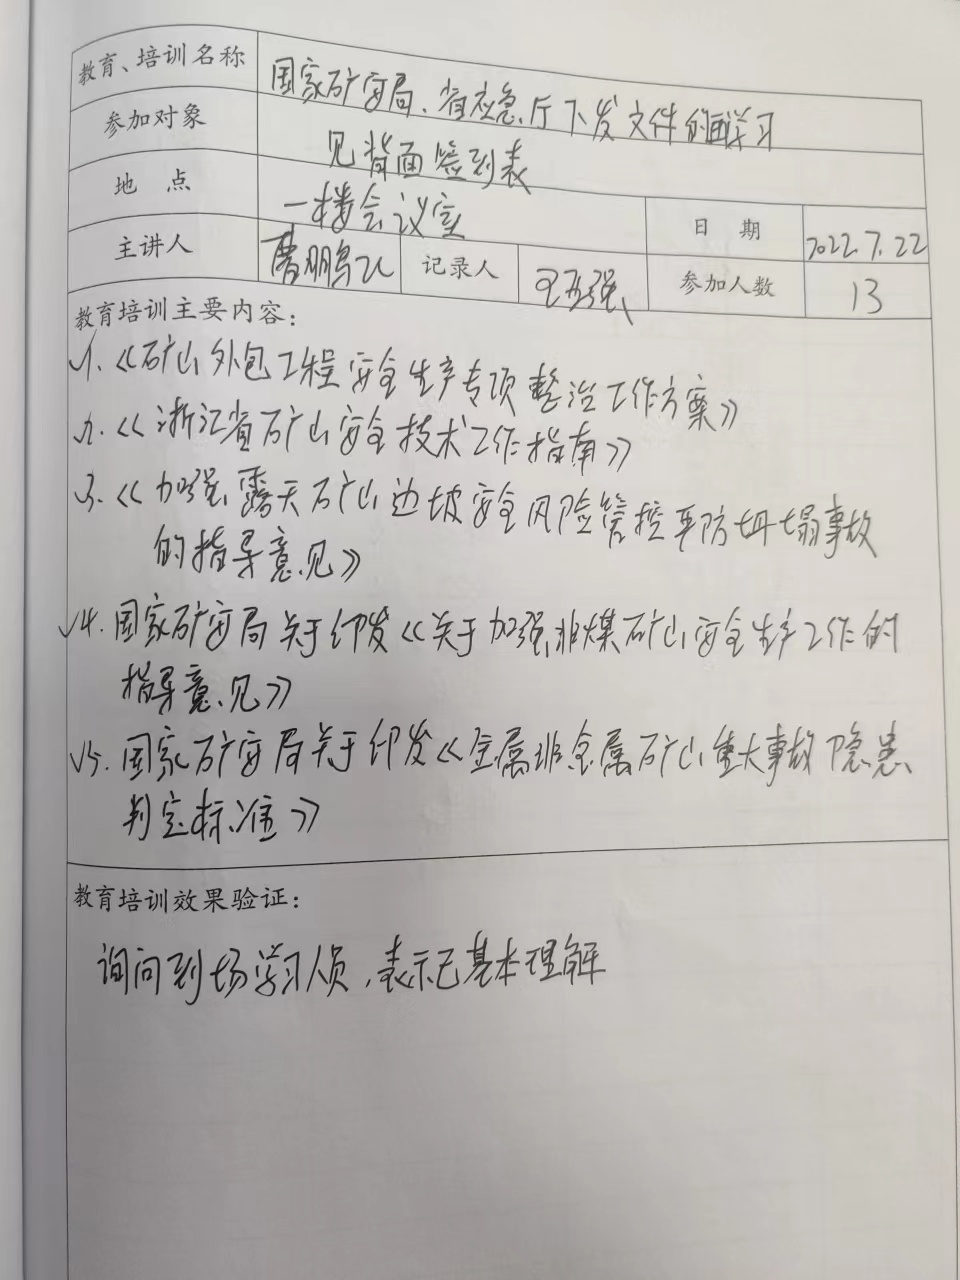 教育、培训名称 国家矿安局、省应急厅下发文件的学习
参加对象 见背面签到表
地 点 一楼会议室 日 期 2022.7.22
主讲人 鹏飞 记录人 王 强 参加人数 13
教育培训主要内容：
√1.《矿山外包工程安全生产专项整治工作方案》
√2.《浙江省矿山安全技术工作指南》
√3.《加强露天矿山边坡安全风险管控严防坍塌事故
的指导意见》
√4.国家矿安局关于印发《关于加强非煤矿山安全生产工作的
指导意见》
√5.国家矿安局关于印发《金属非金属矿山重大事故隐患
判定标准》
教育培训效果验证：
询问到场学习人员，表示已基本理解